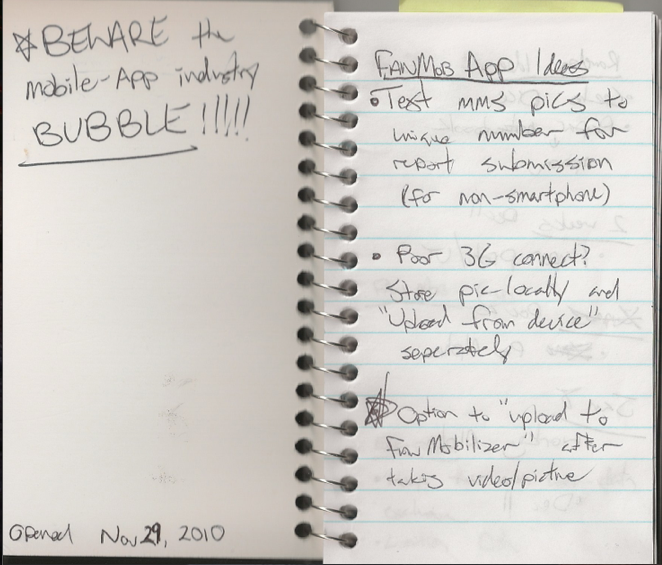 ☆BEWARE the
mobile-App industry
BUBBLE!!!!!
Opened Nov 29, 2010
FANMOB App Ideas
• Text mms pics to
unique number for
report submission
(for non-smartphone)
• Poor 3G connect?
Store pic-locally and
"Upload from device"
seperately
☆ Option to "upload to
FanMobilizer" after
taking video/picture